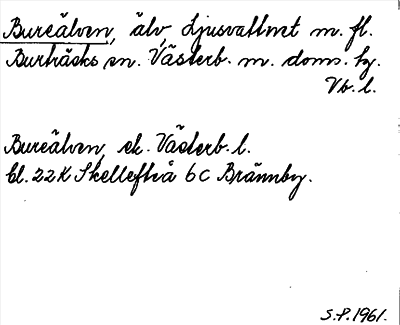 Bureälven, älv, Ljusvattnet m. fl.
Burträsks sn. Västerb. m. doms. hg.
Vb. l.
Bureälven, ek. Västerb. l.
bl. 22K Skellefteå 6C Brännby.
S.P. 1961.